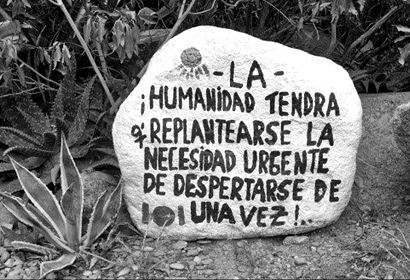 -LA-
¡HUMANIDAD TENDRA
q REPLANTEARSE LA
NECESIDAD URGENTE
DE DESPERTARSE DE
UNA VEZ!..